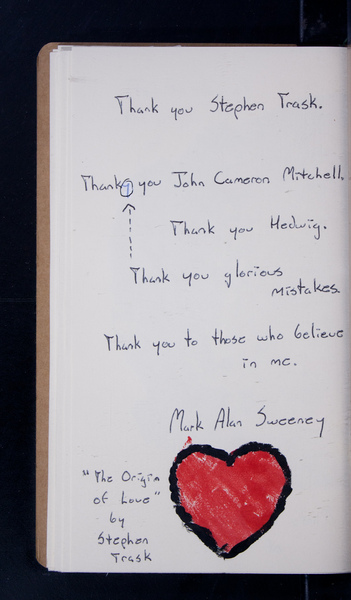 Thank you Stephen Trask.
Thanks you John Cameron Mitchell.
Thank you Hedwig.
Thank you glorious
mistakes.
Thank you to those who believe
in me.
Mark Alan Sweeney
"The Origin
of Love"
by
Stephen
Trask